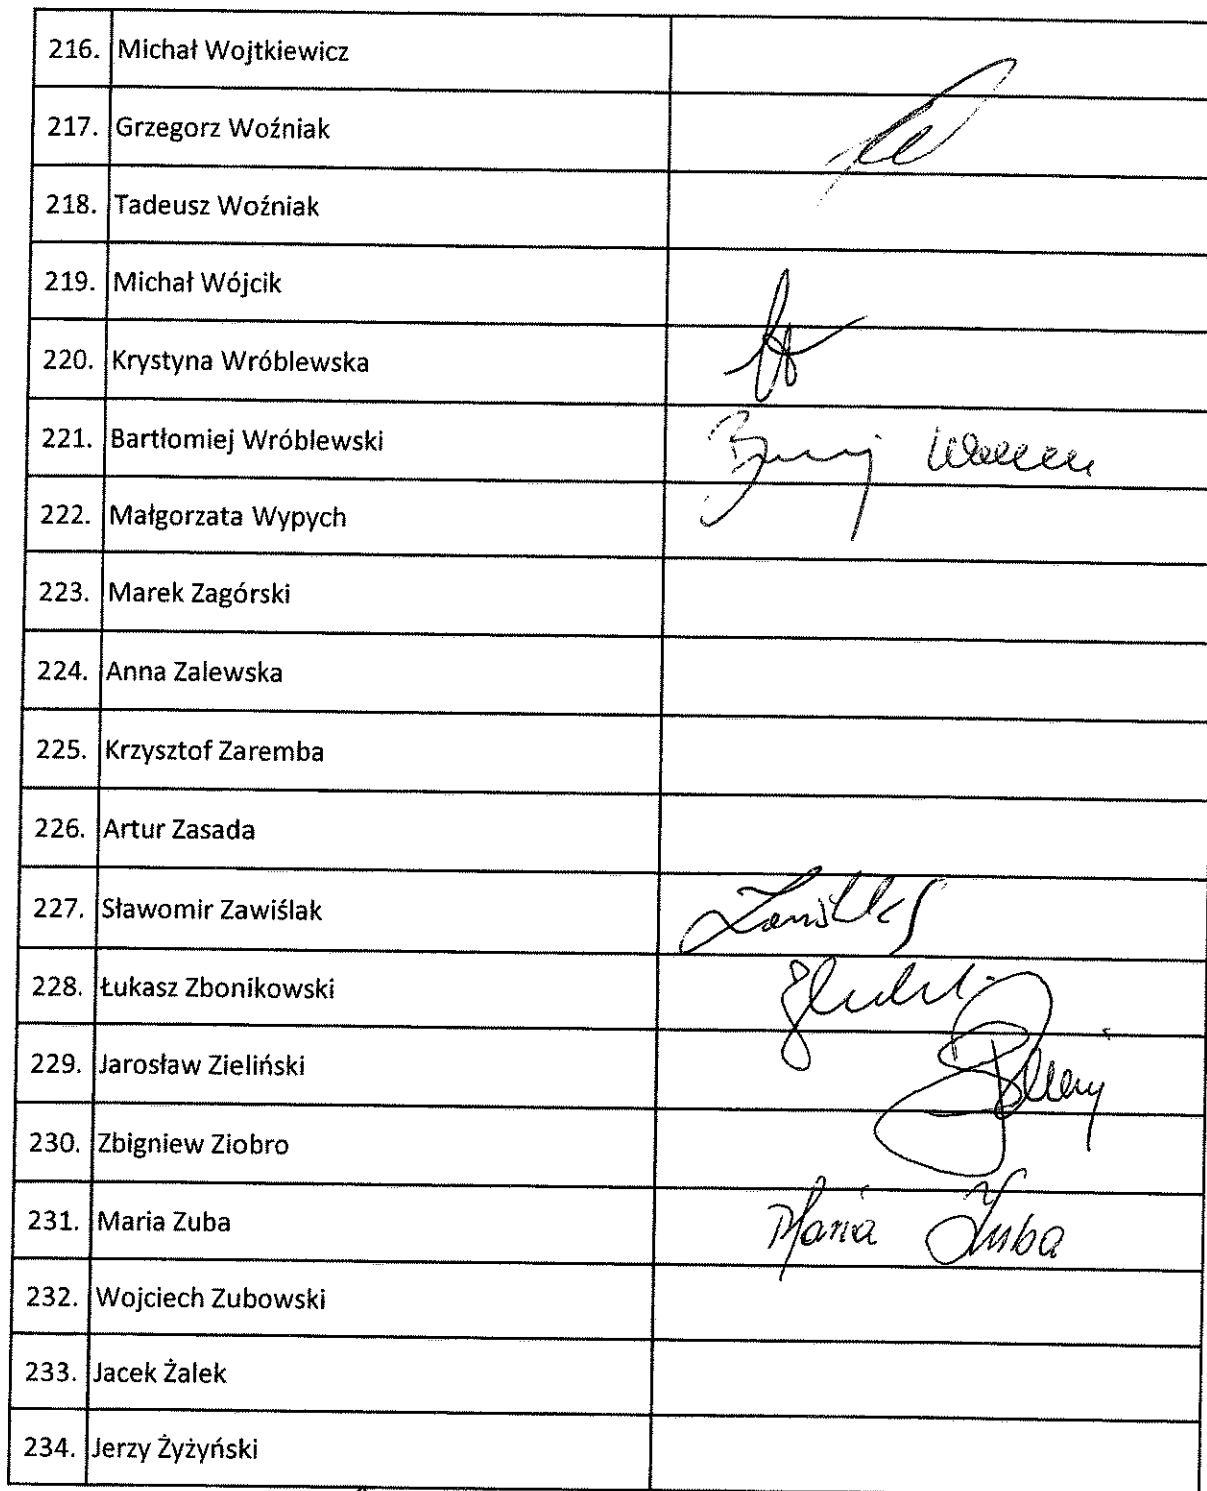 216. Michał Wojtkiewicz
217. Grzegorz Woźniak
218. Tadeusz Woźniak
219. Michał Wójcik
220. Krystyna Wróblewska
221. Bartłomiej Wróblewski
222. Małgorzata Wypych
223. Marek Zagórski
224. Anna Zalewska
225. Krzysztof Zaremba
226. Artur Zasada
227. Sławomir Zawiślak
228. Łukasz Zbonikowski
229. Jarosław Zieliński
230. Zbigniew Ziobro
231. Maria Zuba Maria Zuba
232. Wojciech Zubowski
233. Jacek Żalek
234. Jerzy Żyżyński